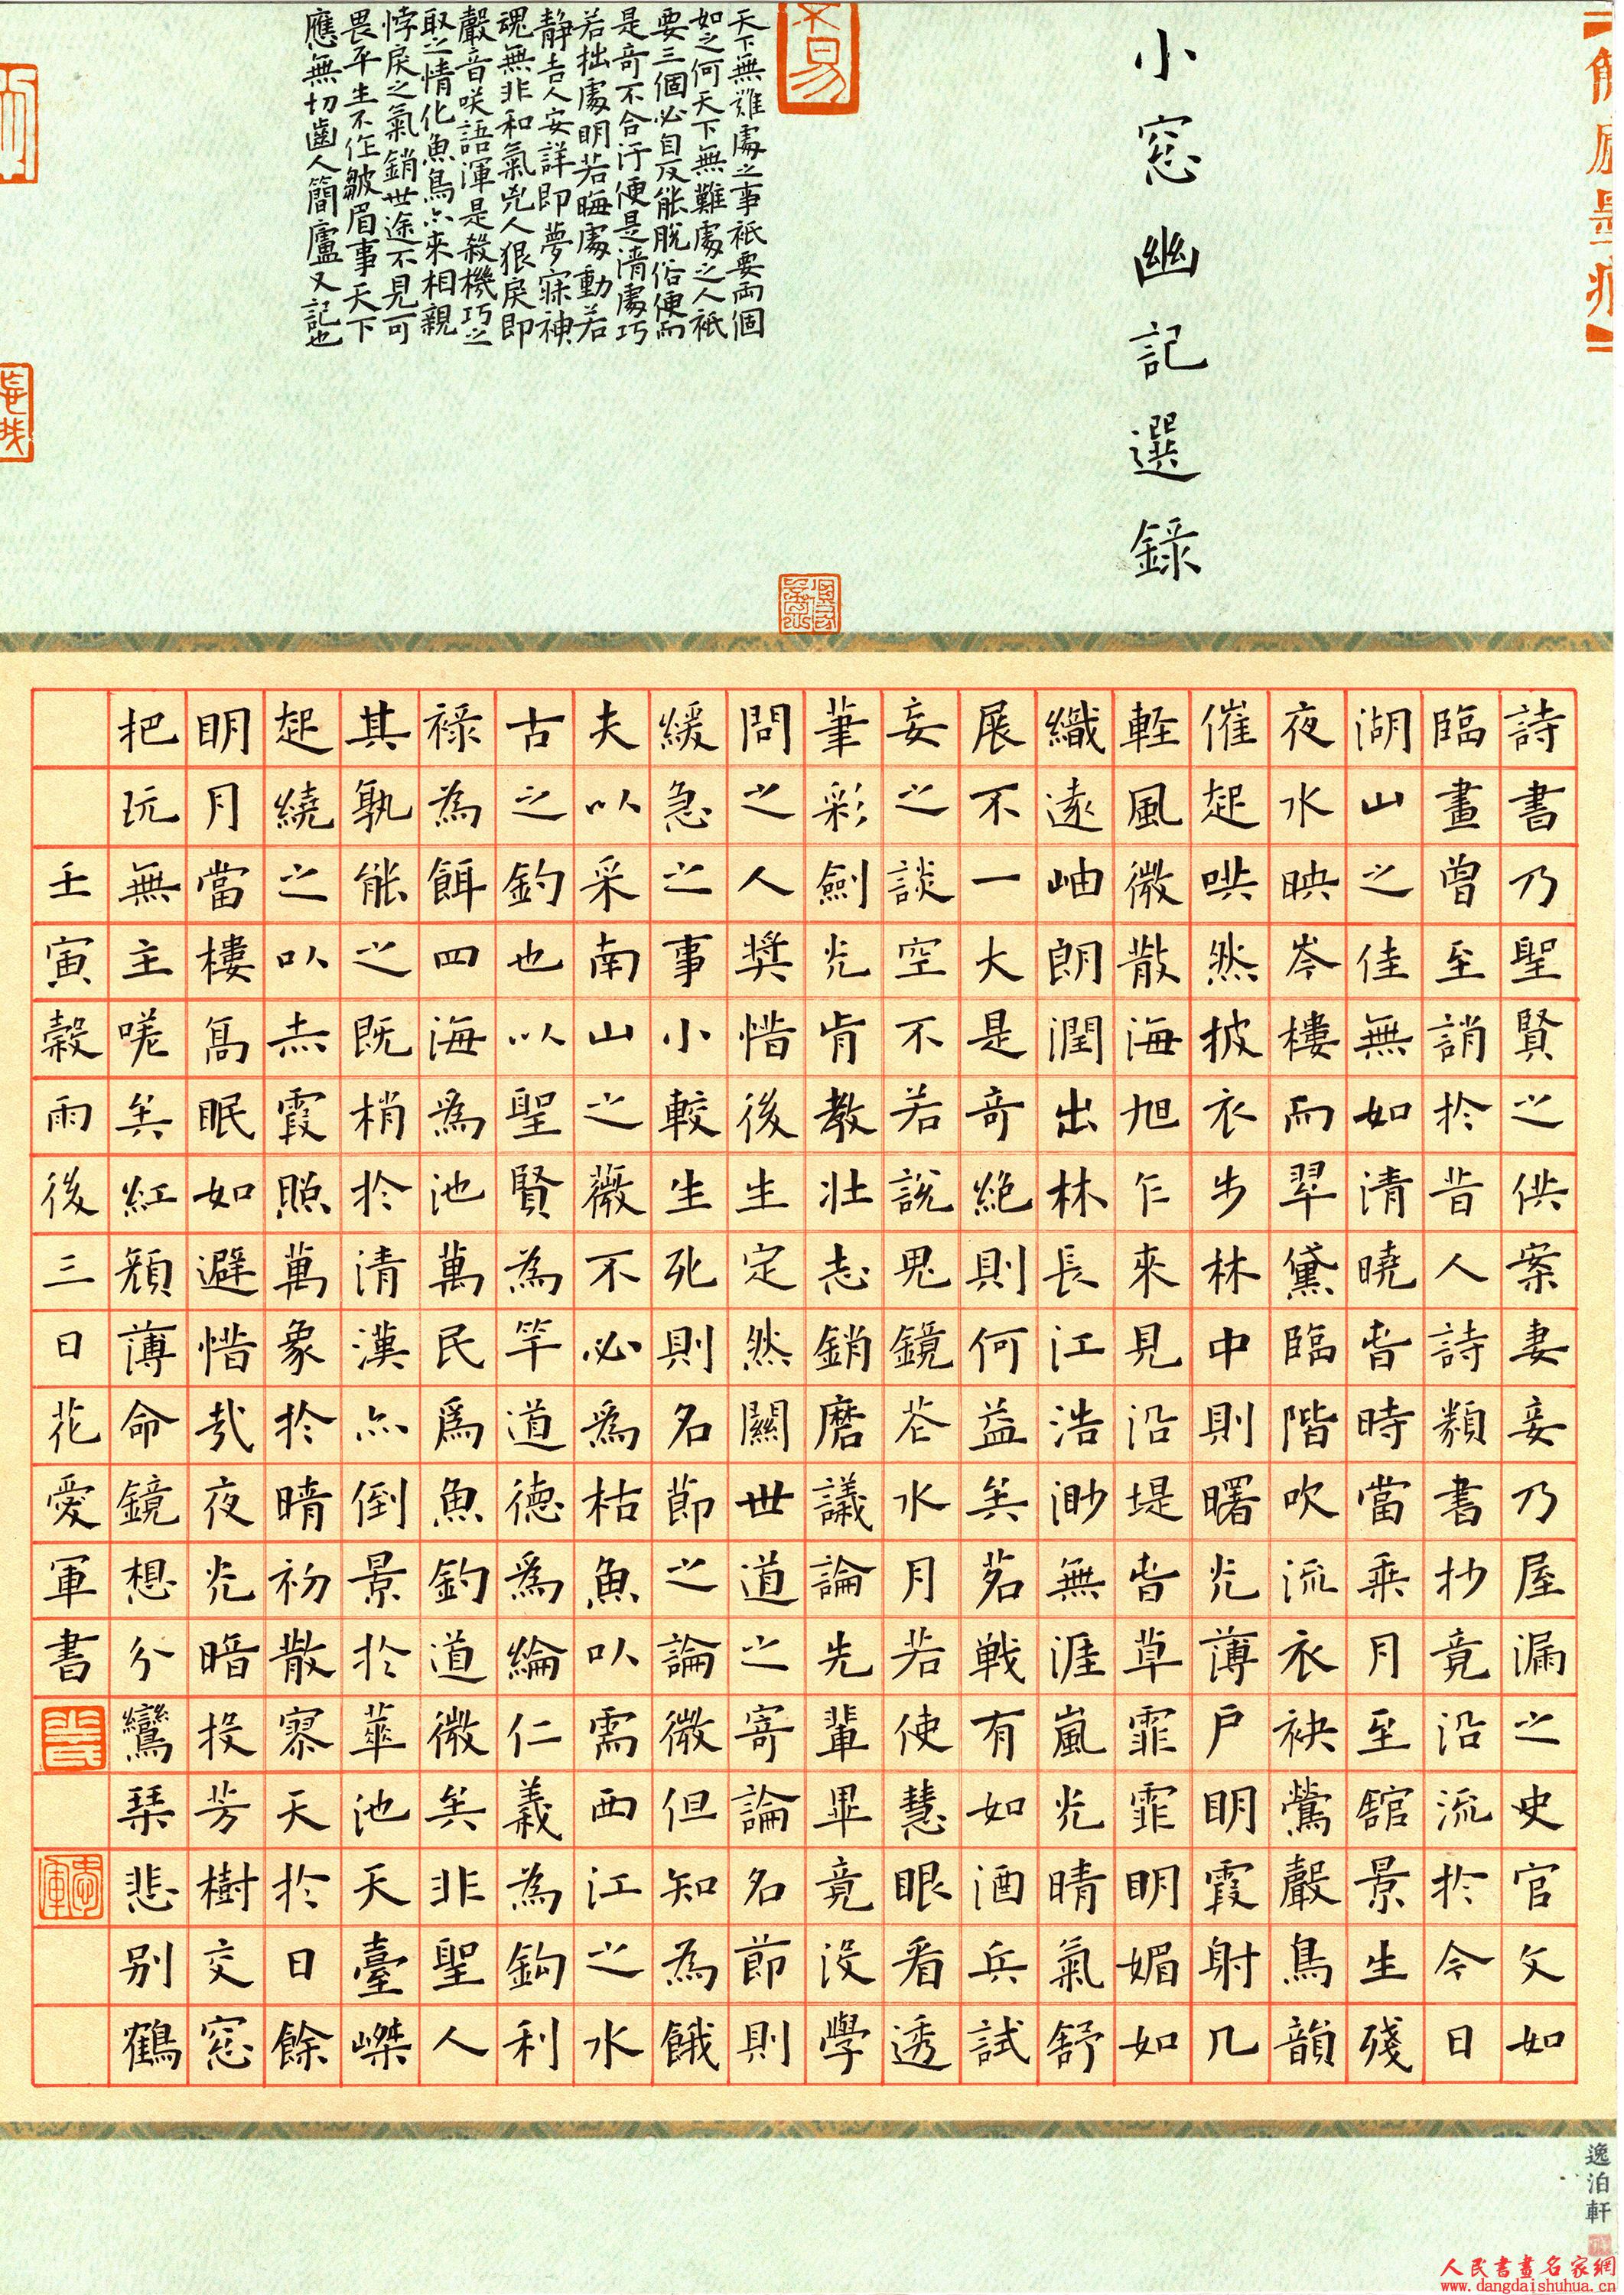 小窓幽記選錄
天下無難處之事祇要兩個
如之何天下無難處之人祇
要三個必自反能脫俗便
是奇不合汙便是清處巧
若拙處明若晦處動若
靜吉人安詳即夢寐神
魂無非和氣兇人狠戾即
聲音咲語渾是殺機巧之
取之情化魚鳥亦來相親
悖戾之氣銷世途不見可
畏平生不作皺眉事天下
應無切齒人簡廬又記也
詩書乃聖賢之供案妻妾乃屋漏之史官文如
臨畫曾至誚於昔人詩類書抄竟沿流於今日
湖山之佳無如清曉旹時當乘月至舘景生殘
夜水映岑樓而翠黛臨階吹流衣袂鶯聲鳥韻
催起哄然披衣步林中則曙光薄戶明霞射几
輕風微散海旭乍來見沿堤旹草霏霏明媚如
織遠岫朗潤出林長江浩渺無涯嵐光晴氣舒
展不一大是奇絕則何益矣茗戰有如酒兵試
妄之談空不若說鬼鏡花水月若使慧眼看透
筆彩劍光肯教壯志銷磨議論先輩畢竟沒學
問之人獎惜後生定然關世道之寄論名節則
緩急之事小較生死則名節之論微但知為餓
夫以采南山之薇不必為枯魚以需西江之水
古之釣也以聖賢為竿道德為綸仁義為鈎利
祿為餌四海為池萬民為魚釣道微矣非聖人
其孰能之既梢於清漢亦倒景於華池天臺嶫
起繞之以赤霞照萬象於晴初散寥天於日餘
明月當樓高眠如避惜哉夜光暗投芳樹交窓
把玩無主嗟矣紅顏薄命鏡想分鸞琹悲別鶴
壬寅穀雨後三日花愛軍書
逸泊軒
人民書畫名家網
www.dangdaishuhua.cn